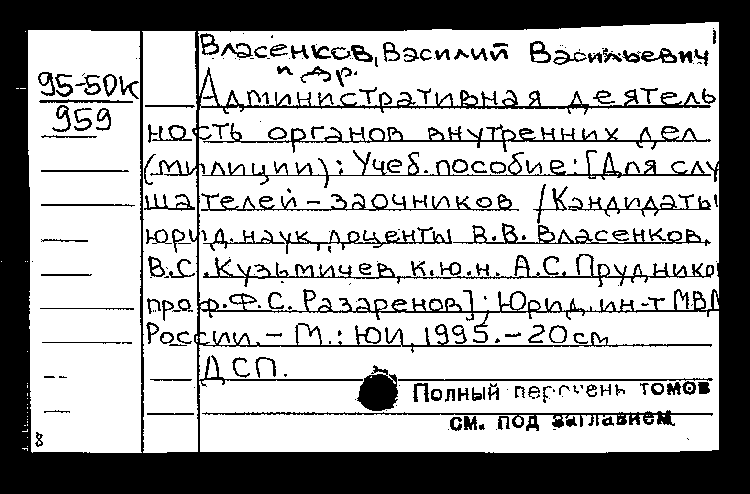 Власенков, Василий Васильевич
и др.
95-5DK
959
Административная деятель
ность органов внутренних дел
(милиции): Учеб. пособие: [Для слу
шателей-заочников / Кандидаты
юрид. наук, доценты В.В. Власенков,
В.С. Кузьмичев, к.ю.н. А.С. Прудников
проф. Ф.С. Разаренов]; Юрид. ин-т МВД
России. - М.: ЮИ, 1995. - 20см
ДСП.
Полный перечень томов
см. под заглавием
8